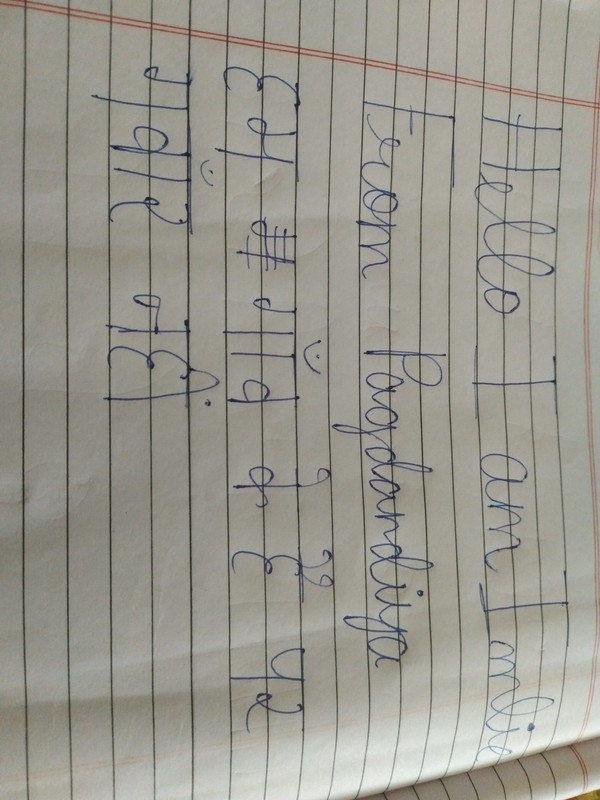 Hello I am Imlie
From Pagdandiya
हम गाँव के है पर
गवाँर नहीं